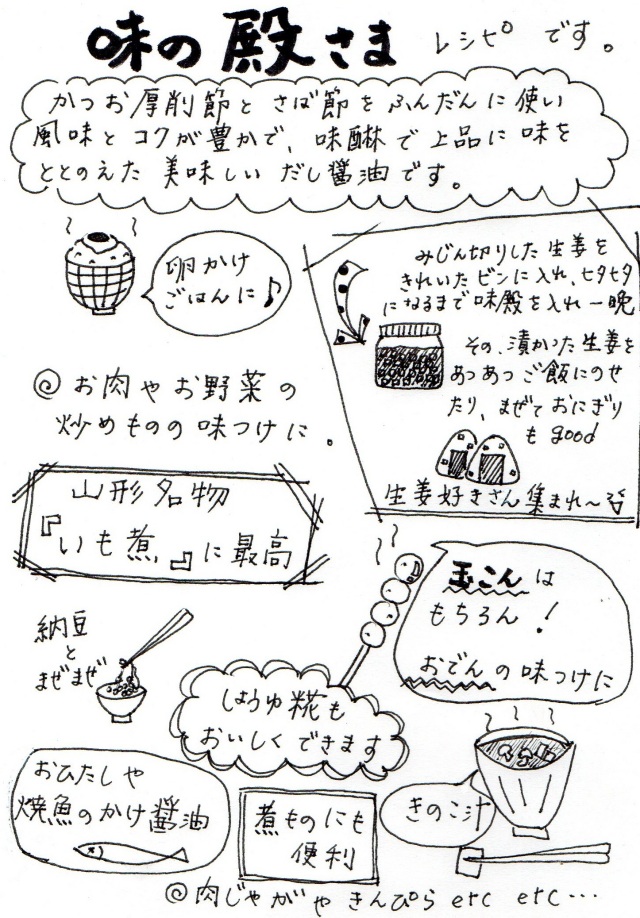 味の殿さま レシピです。
かつお厚削節とさば節をふんだんに使い
風味とコクが豊かで、味醂で上品に味を
ととのえた美味しいだし醤油です。
卵かけ
ごはんに♪
みじん切りした生姜を
きれいなビンに入れ、ヒタヒタ
になるまで味殿を入れ一晩
その、漬かった生姜を
あつあつご飯にのせ
たり、まぜておにぎり
もgood
生姜好きさん集まれ〜
◎お肉やお野菜の
炒めものの味つけに。
山形名物
『いも煮』に最高
玉こんは
もちろん!
おでんの味つけに
納豆
と
まぜまぜ
しょうゆ糀も
おいしくできます
おひたしや
焼魚のかけ醤油
煮ものにも
便利
きのこ汁
◎肉じゃがやきんぴら etc etc…